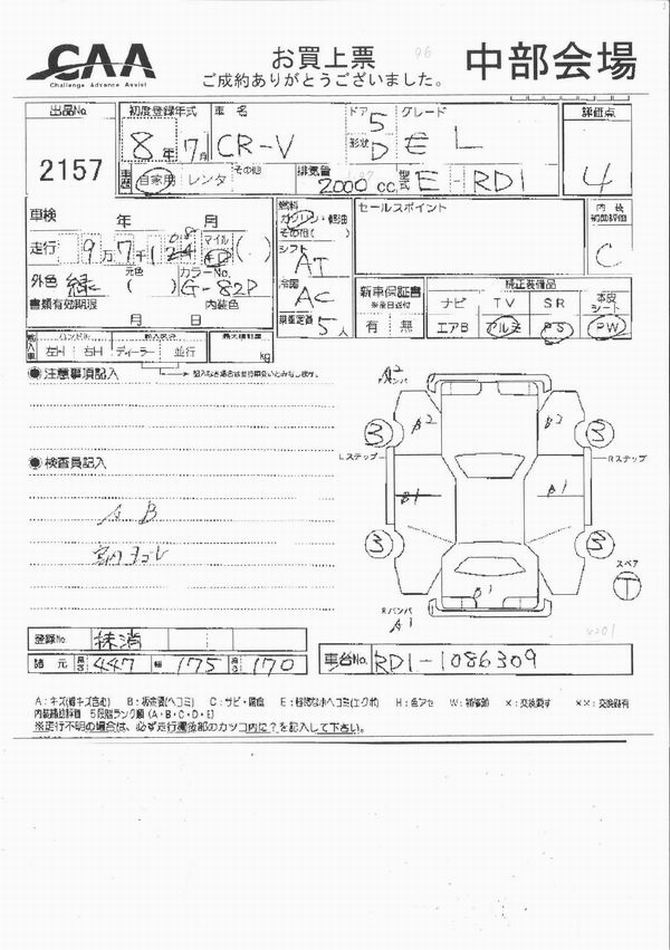 CAA
Challenge Advance Assist
お買上票
ご成約ありがとうございました。
中部会場
出品No.
2157
初度登録年式
8年7月
車名
CR-V
ドア 5
形状 D
グレード
E L
評価点
4
車歴 自家用 レンタ その他
排気量
2000 cc
型式 E-RD1
車検 年 月
走行 9万7千1
マイル
外色 緑
元色
( )
カラーNo.
G-82P
書類有効期限
月 日
内装色
燃料
ガソリン・軽油
その他( )
シフト
AT
冷房
AC
乗車定員
5人
セールスポイント
内装
補助評価
C
新車保証書
※後日送付
有 無
純正装備品
ナビ TV SR 本皮シート
エアB アルミ PS PW
輸入車
ハンドル
左H 右H
ディーラー 並行
最大積載量
kg
記入なき場合は並行扱いとみなします。
●注意事項記入
●検査員記入
A B
室内ヨゴレ
Fバンパ A2
B2 B2
3 3
Lステップ Rステップ
B1 B1
3 3
スペア
T
Rバンパ
A1
登録No. 抹消
諸元 長さ 447 幅 175 高さ 170
車台No. RD1-1086309
A:キズ(線キズ含む) B:板金跡(ヘコミ) C:サビ・腐食 E:軽微な小ヘコミ(エクボ) H:色アセ W:補修跡 X:交換要す XX:交換跡有
内装補助評価 5段階ランク順(A・B・C・D・E)
※走行不明の場合は、必ず走行欄後部のカッコ内に?を記入して下さい。